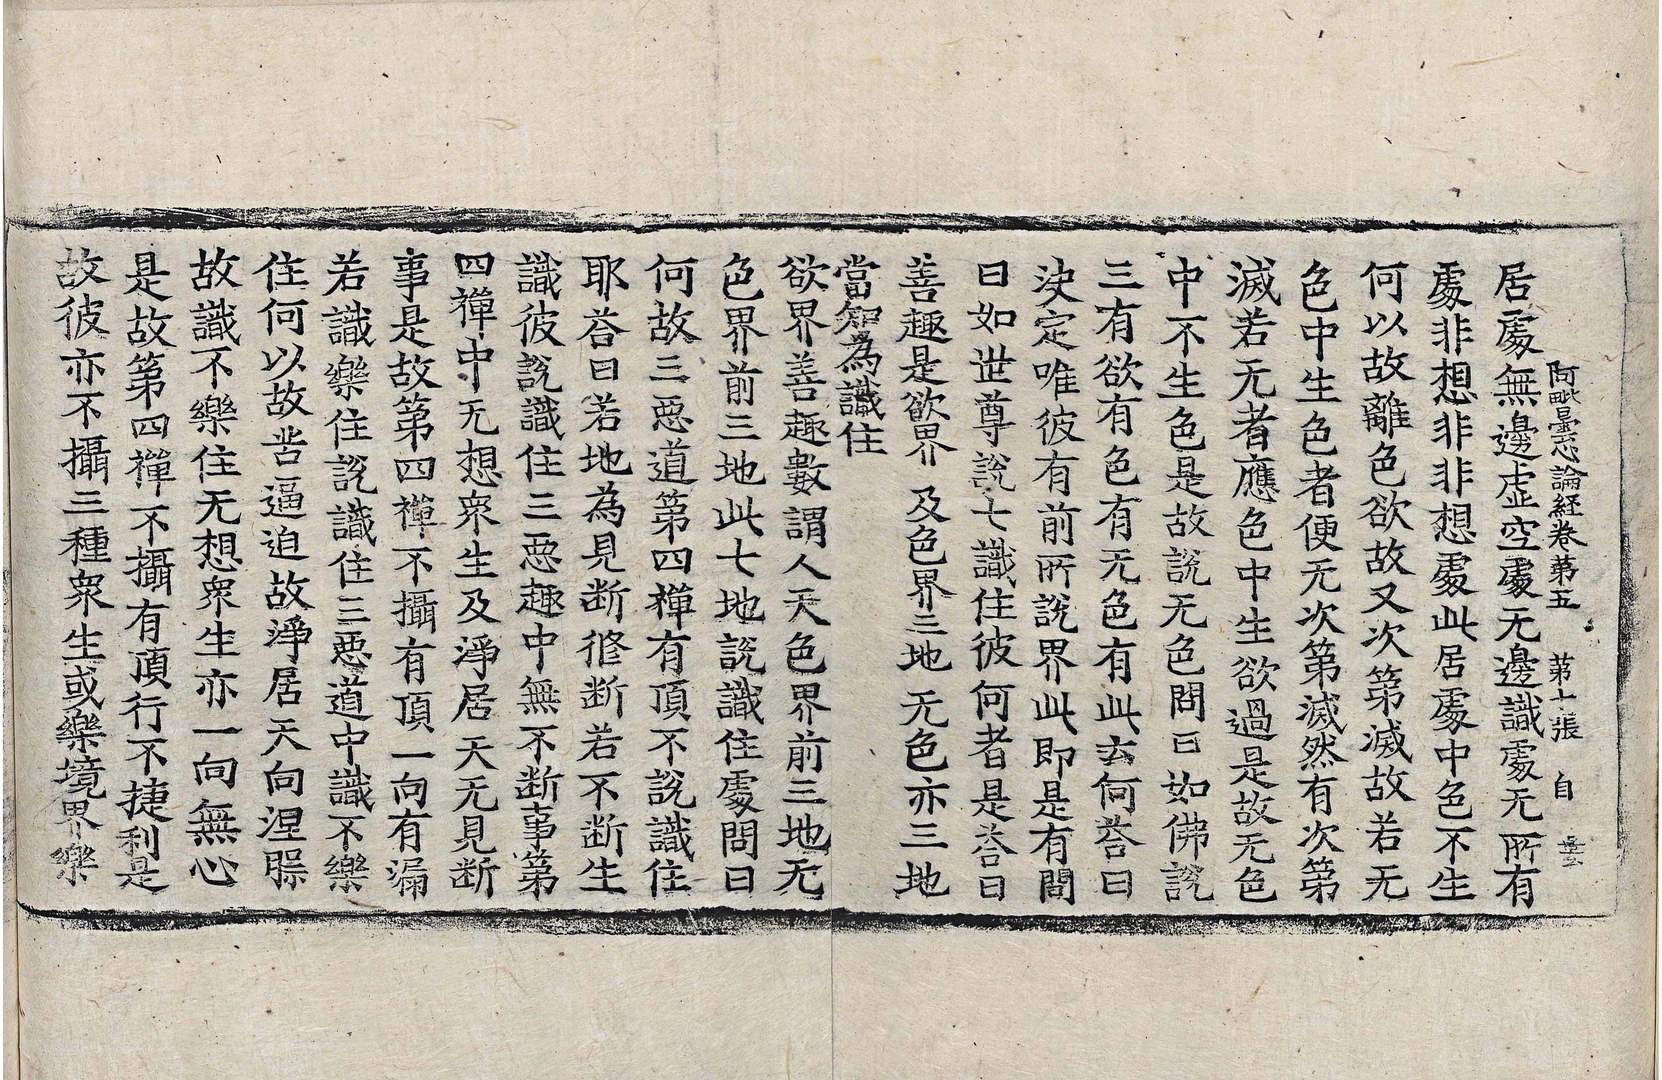 阿毗曇心論経卷第五 第十張 自
居處無邊虛空處无邊識處无所有
處非想非非想處此居處中色不生
何以故離色欲故又次第滅故若无
色中生色者便无次第滅然有次第
滅若无者應色中生欲過是故无色
中不生色是故說无色問曰如佛說
三有欲有色有无色有此云何荅曰
決定唯彼有前所說界此即是有問
曰如世尊說七識住彼何者是荅曰
善趣是欲界 及色界三地 无色亦三地
當知為識住
欲界善趣數謂人天色界前三地无
色界前三地此七地說識住處問曰
何故三惡道第四禪有頂不說識住
耶荅曰若地為見断修断若不断生
識彼說識住三惡趣中無不断事第
四禪中无想衆生及淨居天无見断
事是故第四禪不攝有頂一向有漏
若識樂住說識住三惡道中識不樂
住何以故苦逼迫故淨居天向涅槃
故識不樂住无想衆生亦一向無心
是故第四禪不攝有頂行不捷利是
故彼亦不攝三種衆生或樂境界樂